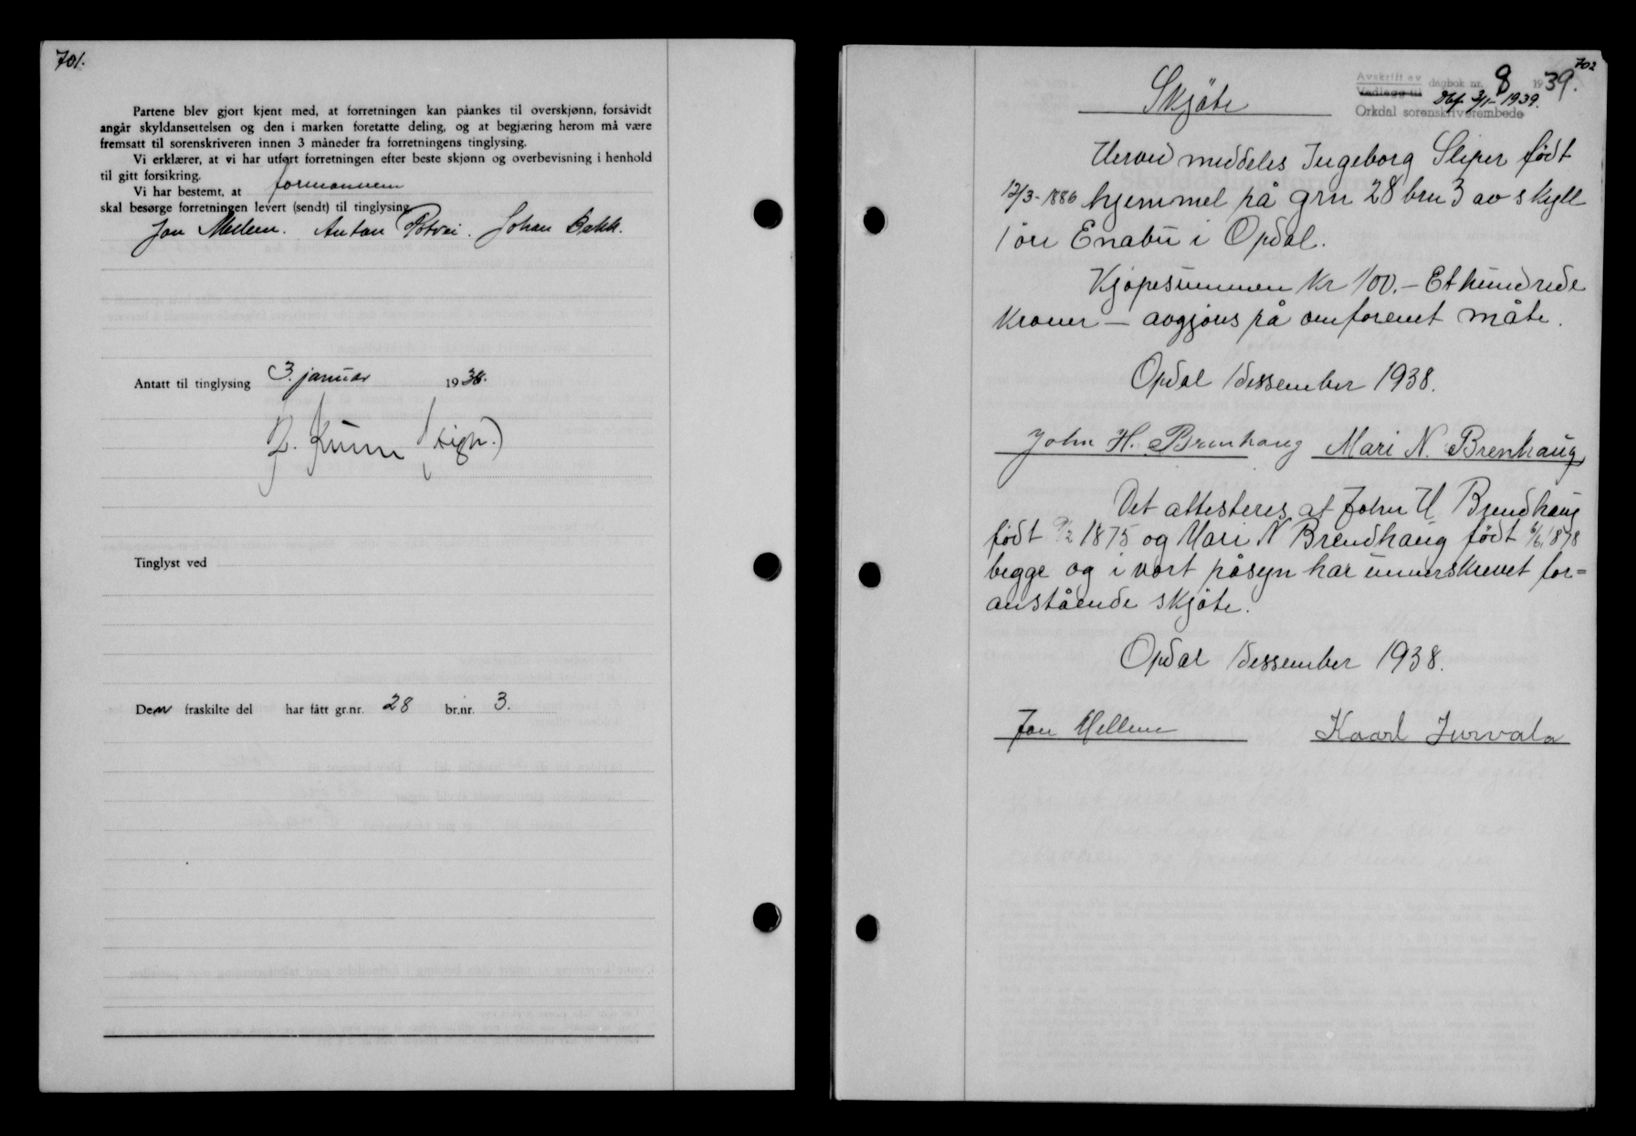 701.
Partene blev gjort kjent med, at forretningen kan påankes til overskjønn, forsåvidt
angår skyldansettelsen og den i marken foretatte deling, og at begjæring herom må være
fremsatt til sorenskriveren innen 3 måneder fra forretningens tinglysing.
Vi erklærer, at vi har utført forretningen efter beste skjønn og overbevisning i henhold
til gitt forsikring.
Vi har bestemt, at formannen
skal besørge forretningen levert (sendt) til tinglysing.
Jon Mellem. Anton Johan Bakk.
Antatt til tinglysing 3. januar 1938.
(sign.)
Tinglyst ved
Den fraskilte del har fått gr.nr. 28 br.nr. 3.
702
Skjøte
Avskrift av
Vedlegg til dagbok nr. 8 1939.
Dbf. 3/1-1939.
Orkdal sorenskriverembede
Herved meddeles Ingeborg Sliper født
12/3-1886 hjemmel på grn 28 brn 3 av skyll
1 øre Enabu i Opdal.
Kjøpesummen Kr 100.- Ethundrede
kroner — avgjøres på omforenet måte.
Opdal 1 dessember 1938.
John H. Brenhaug Mari N. Brenhaug
Det attesteres at John H Brendhaug
født 1875 og Mari N Brendhaug født 6/6 1878
begge og i vort påsyn har underskrevet for=
anstående skjøte.
Opdal 1 dessember 1938.
Jon Mellem Kaarl